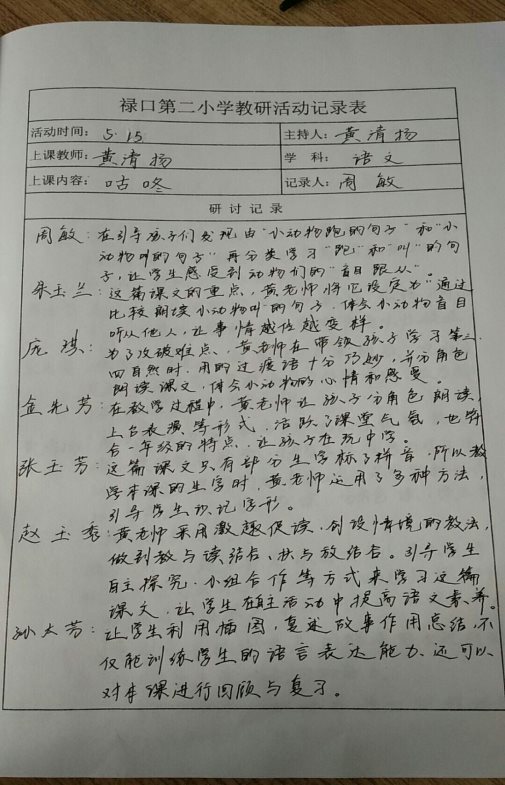 禄口第二小学教研活动记录表
活动时间： 5.15 主持人：黄清扬
上课教师：黄清扬 学 科： 语文
上课内容：咕咚 记录人：周敏
研讨记录
周敏：在引导孩子们发现由“小动物跑的句子”和“小
动物叫的句子”再分类学习“跑”和“叫”的句
子，让学生感受到动物们的“盲目跟从”。
朱玉兰：这篇课文的重点，黄老师将它设定为“通过
比较朗读小动物叫”的句子，体会小动物盲目
听从他人，让事情越传越变样。
庞琪：为了攻破难点，黄老师在带领孩子学习第三、
四自然时，用的过渡语十分巧妙，并分角色
朗读课文，体会小动物的心情和感受。
金先芳：在教学过程中，黄老师让孩子分角色朗读，
上台表演等形式，活跃了课堂气氛，也符
合一年级的特点，让孩子在玩中学。
张玉芳：这篇课文只有部分生字标了拼音，所以教
学本课的生字时，黄老师运用了多种方法，
引导学生识记字形。
赵玉秀：黄老师采用激趣促读，创设情境的教法，
做到教与读结合、扶与放结合。引导学生
自主探究，小组合作等方式来学习这篇
课文，让学生在自主活动中提高语文素养。
孙太芳：让学生利用插图，复述故事作用总结，不
仅能训练学生的语言表达能力，还可以
对本课进行回顾与复习。